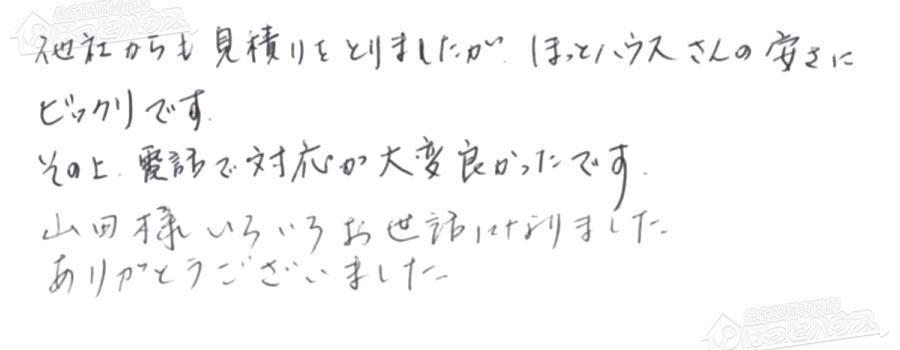 他社からも見積りをとりましたが、ほっとハウスさんの安さに
ビックリです。
その上、電話で対応が大変良かったです。
山田様いろいろお世話になりました。
ありがとうございました。
ほっとハウス
ほっとハウス